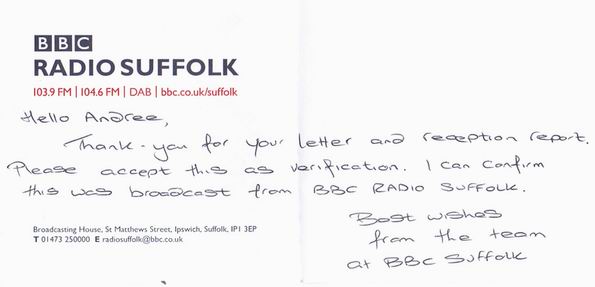 BBC
RADIO SUFFOLK
103.9 FM | 104.6 FM | DAB | bbc.co.uk/suffolk
Hello Andree,
Thank-you for your letter and reception report.
Please accept this as verification. I can confirm
this was broadcast from BBC RADIO SUFFOLK.
Best wishes
from the team
at BBC Suffolk
Broadcasting House, St Matthews Street, Ipswich, Suffolk, IP1 3EP
T 01473 250000 E radiosuffolk@bbc.co.uk